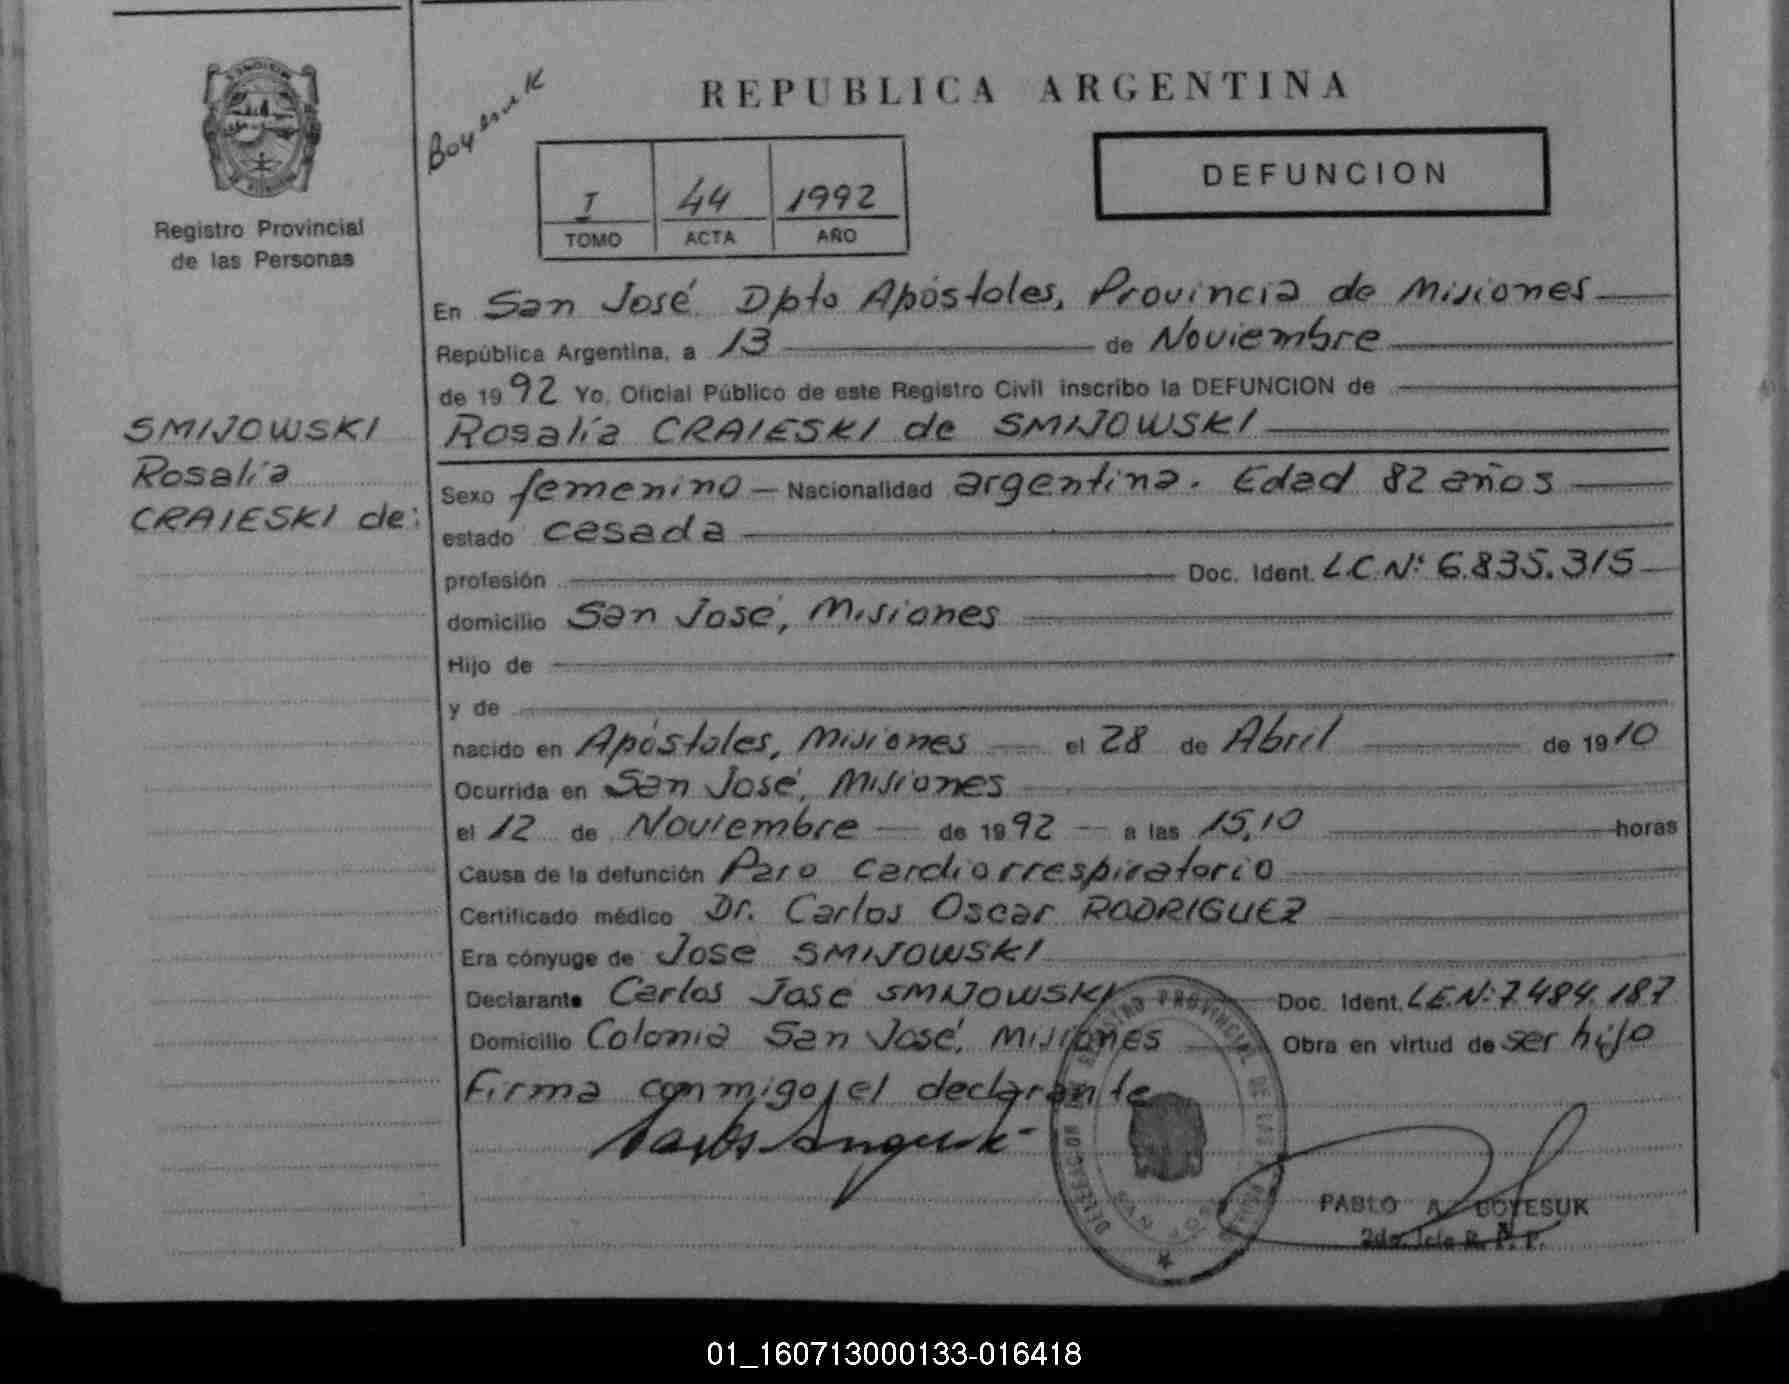 REPUBLICA ARGENTINA
Boyesuk
I 44 1992
TOMO ACTA AÑO
DEFUNCION
Registro Provincial
de las Personas
SMIJOWSKI
Rosalía
CRAIESKI de:
En San José Dpto Apóstoles, Provincia de Misiones
República Argentina, a 13 de Noviembre
de 1992 Yo, Oficial Público de este Registro Civil inscribo la DEFUNCION de
Rosalía CRAIESKI de SMIJOWSKI
Sexo femenino - Nacionalidad argentina. Edad 82 años
estado casada
profesión Doc. Ident. L.C.Nº: 6.835.315
domicilio San José, Misiones
Hijo de
y de
nacido en Apóstoles, Misiones el 28 de Abril de 1910
Ocurrida en San José, Misiones
el 12 de Noviembre de 1992 a las 15,10 horas
Causa de la defunción Paro cardiorrespiratorio
Certificado médico Dr. Carlos Oscar RODRIGUEZ
Era cónyuge de Jose SMIJOWSKI
Declarante Carlos Jose SMIJOWSKI Doc. Ident. L.E.Nº: 7.484.187
Domicilio Colonia San José, Misiones Obra en virtud de ser hijo
Firma conmigo, el declarante
PABLO A. BOYESUK
R. P. P.
01_160713000133-016418